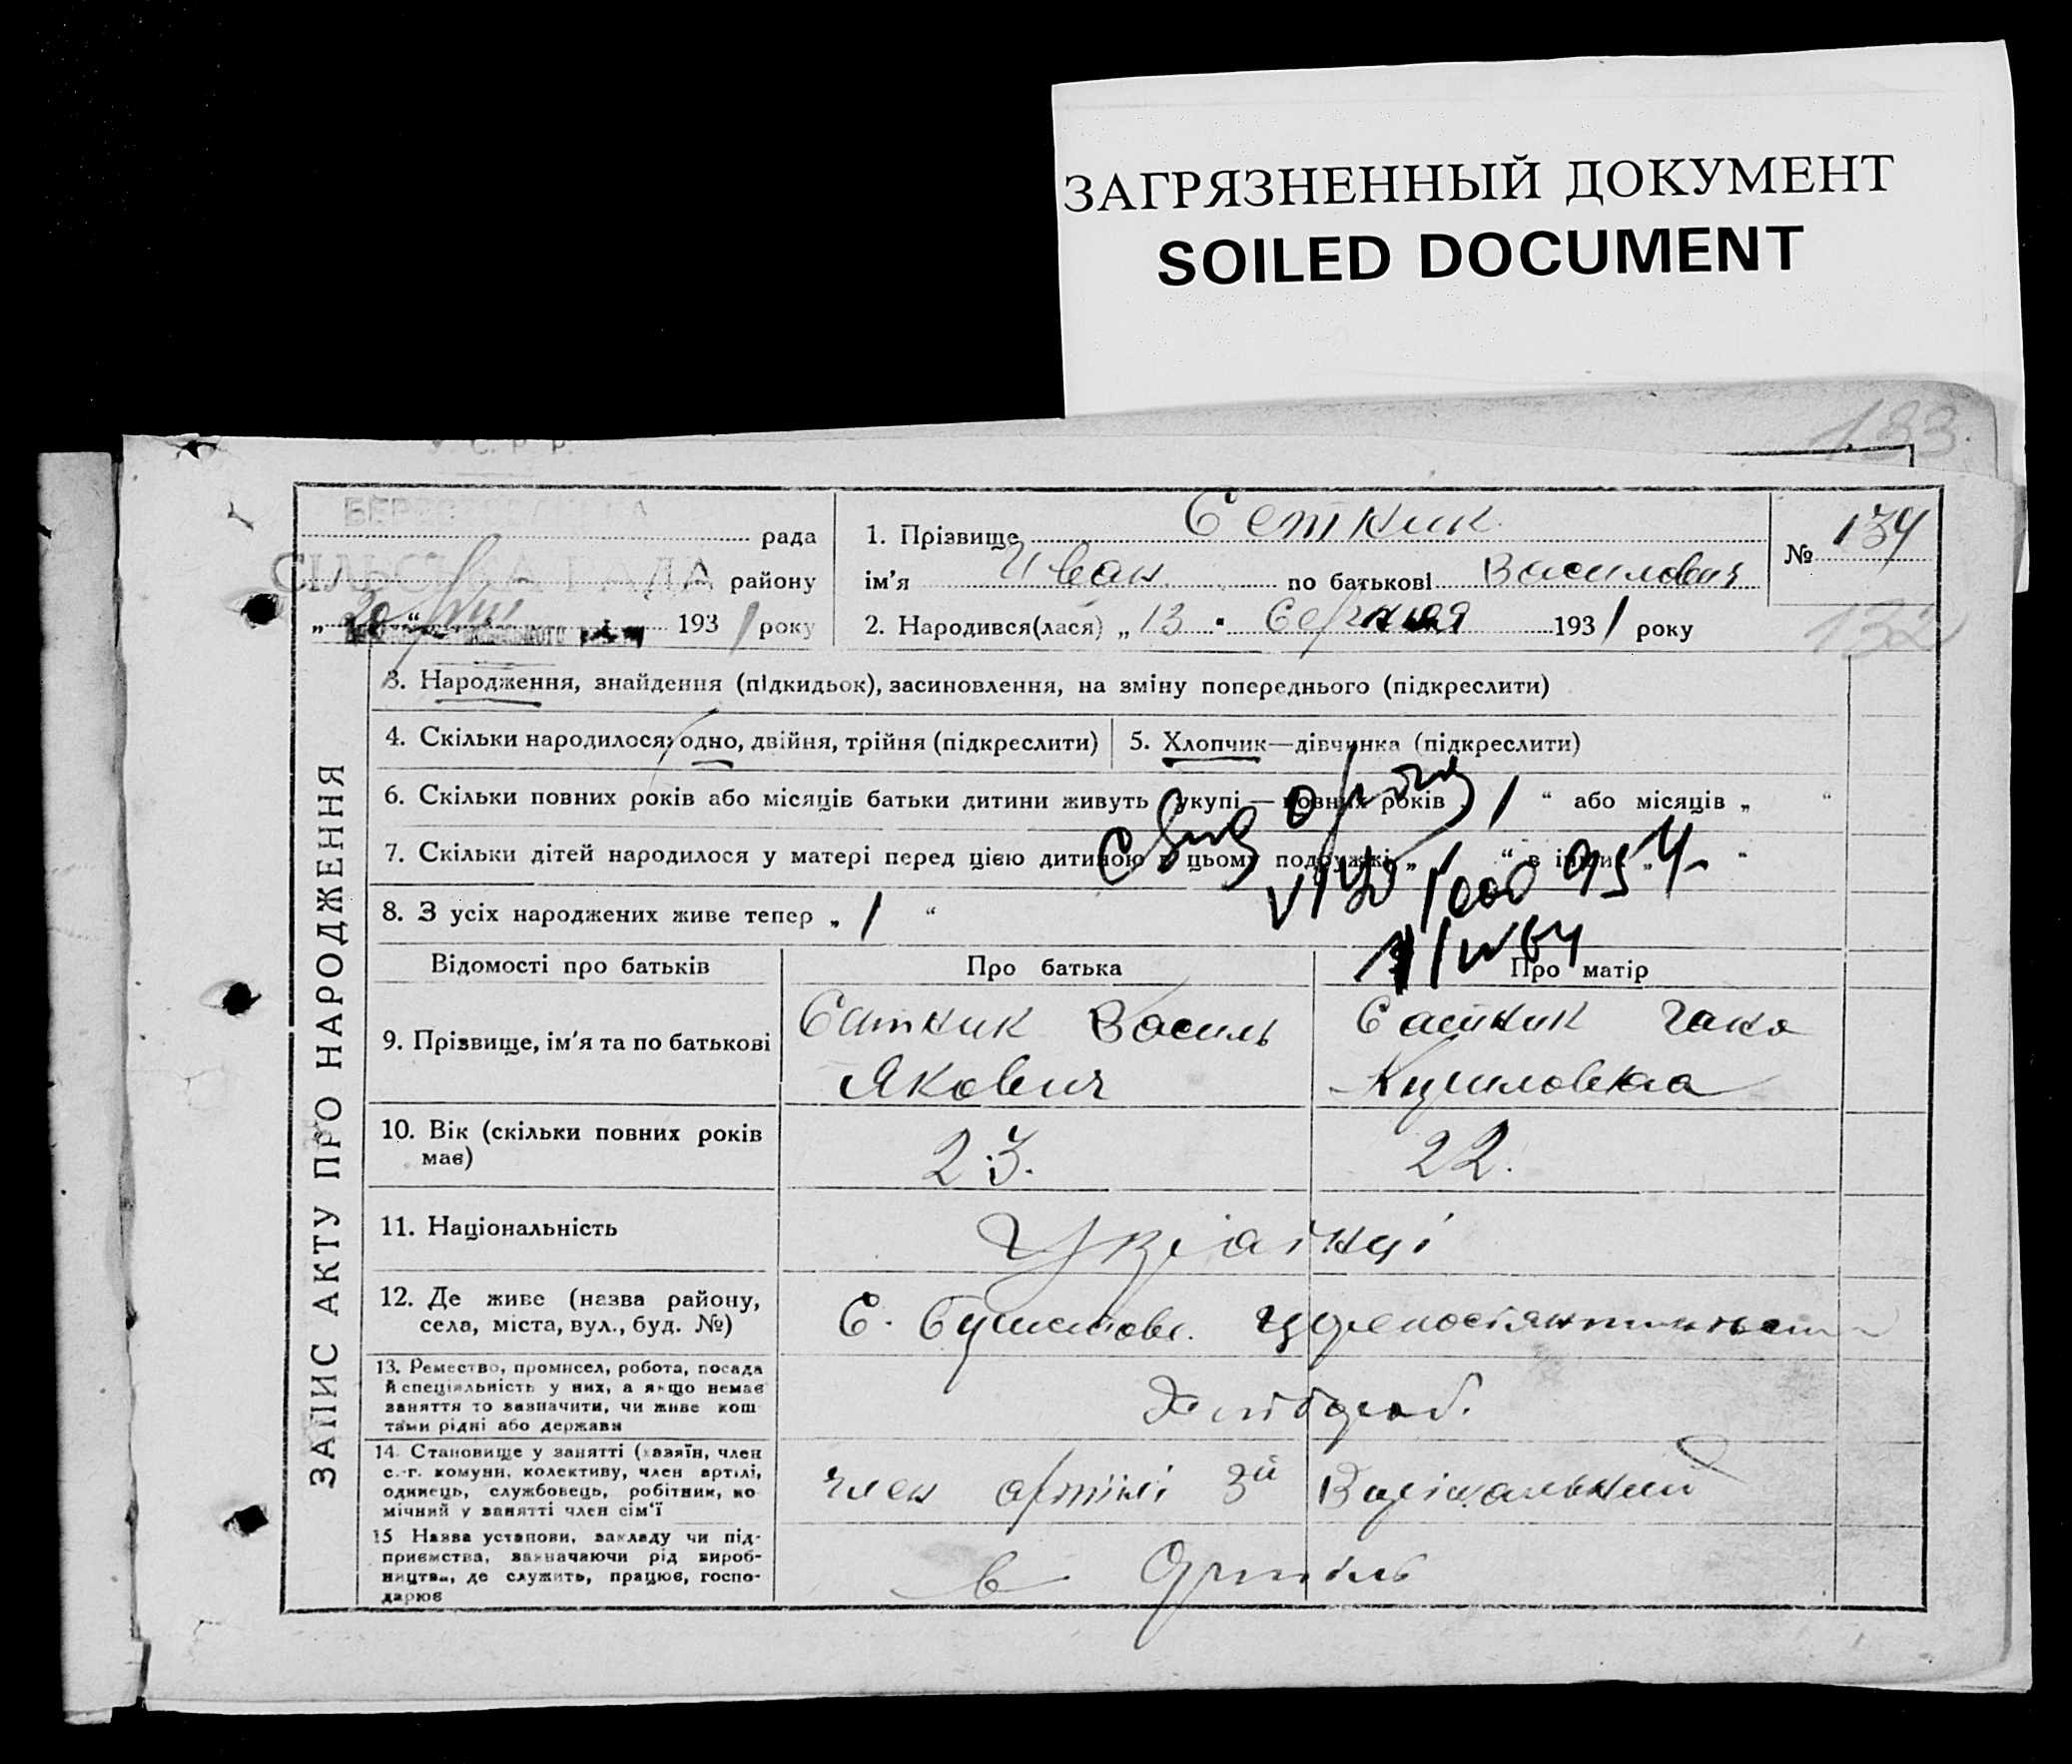 ЗАГРЯЗНЕННЫЙ ДОКУМЕНТ
SOILED DOCUMENT
133
У. С. Р. Р.
СІЛЬСЬКА РАДА
рада
району
„ 30 “ VIII 1931 року
1. Прізвище Сетник
ім'я Иван по батькові Василович
2. Народився(лася) „13 “ Серпня 1931 року
№ 134
132
ЗАПИС АКТУ ПРО НАРОДЖЕННЯ
3. Народження, знайдення (підкидьок), засиновлення, на зміну попереднього (підкреслити)
4. Скільки народилося: одно, двійня, трійня (підкреслити)
5. Хлопчик—дівчинка (підкреслити)
6. Скільки повних років або місяців батьки дитини живуть укупі — повних років „ 1 “ або місяців „ “
7. Скільки дітей народилося у матері перед цією дитиною в цьому подружжі „ 1 “ в інших „ “
8. З усіх народжених живе тепер „ 1 “
Відомості про батьків
Про батька
Про матір
9. Прізвище, ім'я та по батькові
Сатник Василь
Якович
Сатник Ганна
10. Вік (скільки повних років
має)
23.
22.
11. Національність
Українці
12. Де живе (назва району,
села, міста, вул., буд. №)
С.
13. Ремество, промисел, робота, посада
й спеціяльність у них, а якщо немає
заняття то зазначити, чи живе кош
тами рідні або держави
Хлібороб.
14. Становище у занятті (хазяїн, член
с.-г. комуни, колективу, член артілі,
одинець, службовець, робітник, по
мічний у занятті член сім'ї
член артілі
15 Назва установи, закладу чи під-
приємства, зазначаючи рід вироб-
ництва, де служить, працює, госпо-
дарює
в Артіль